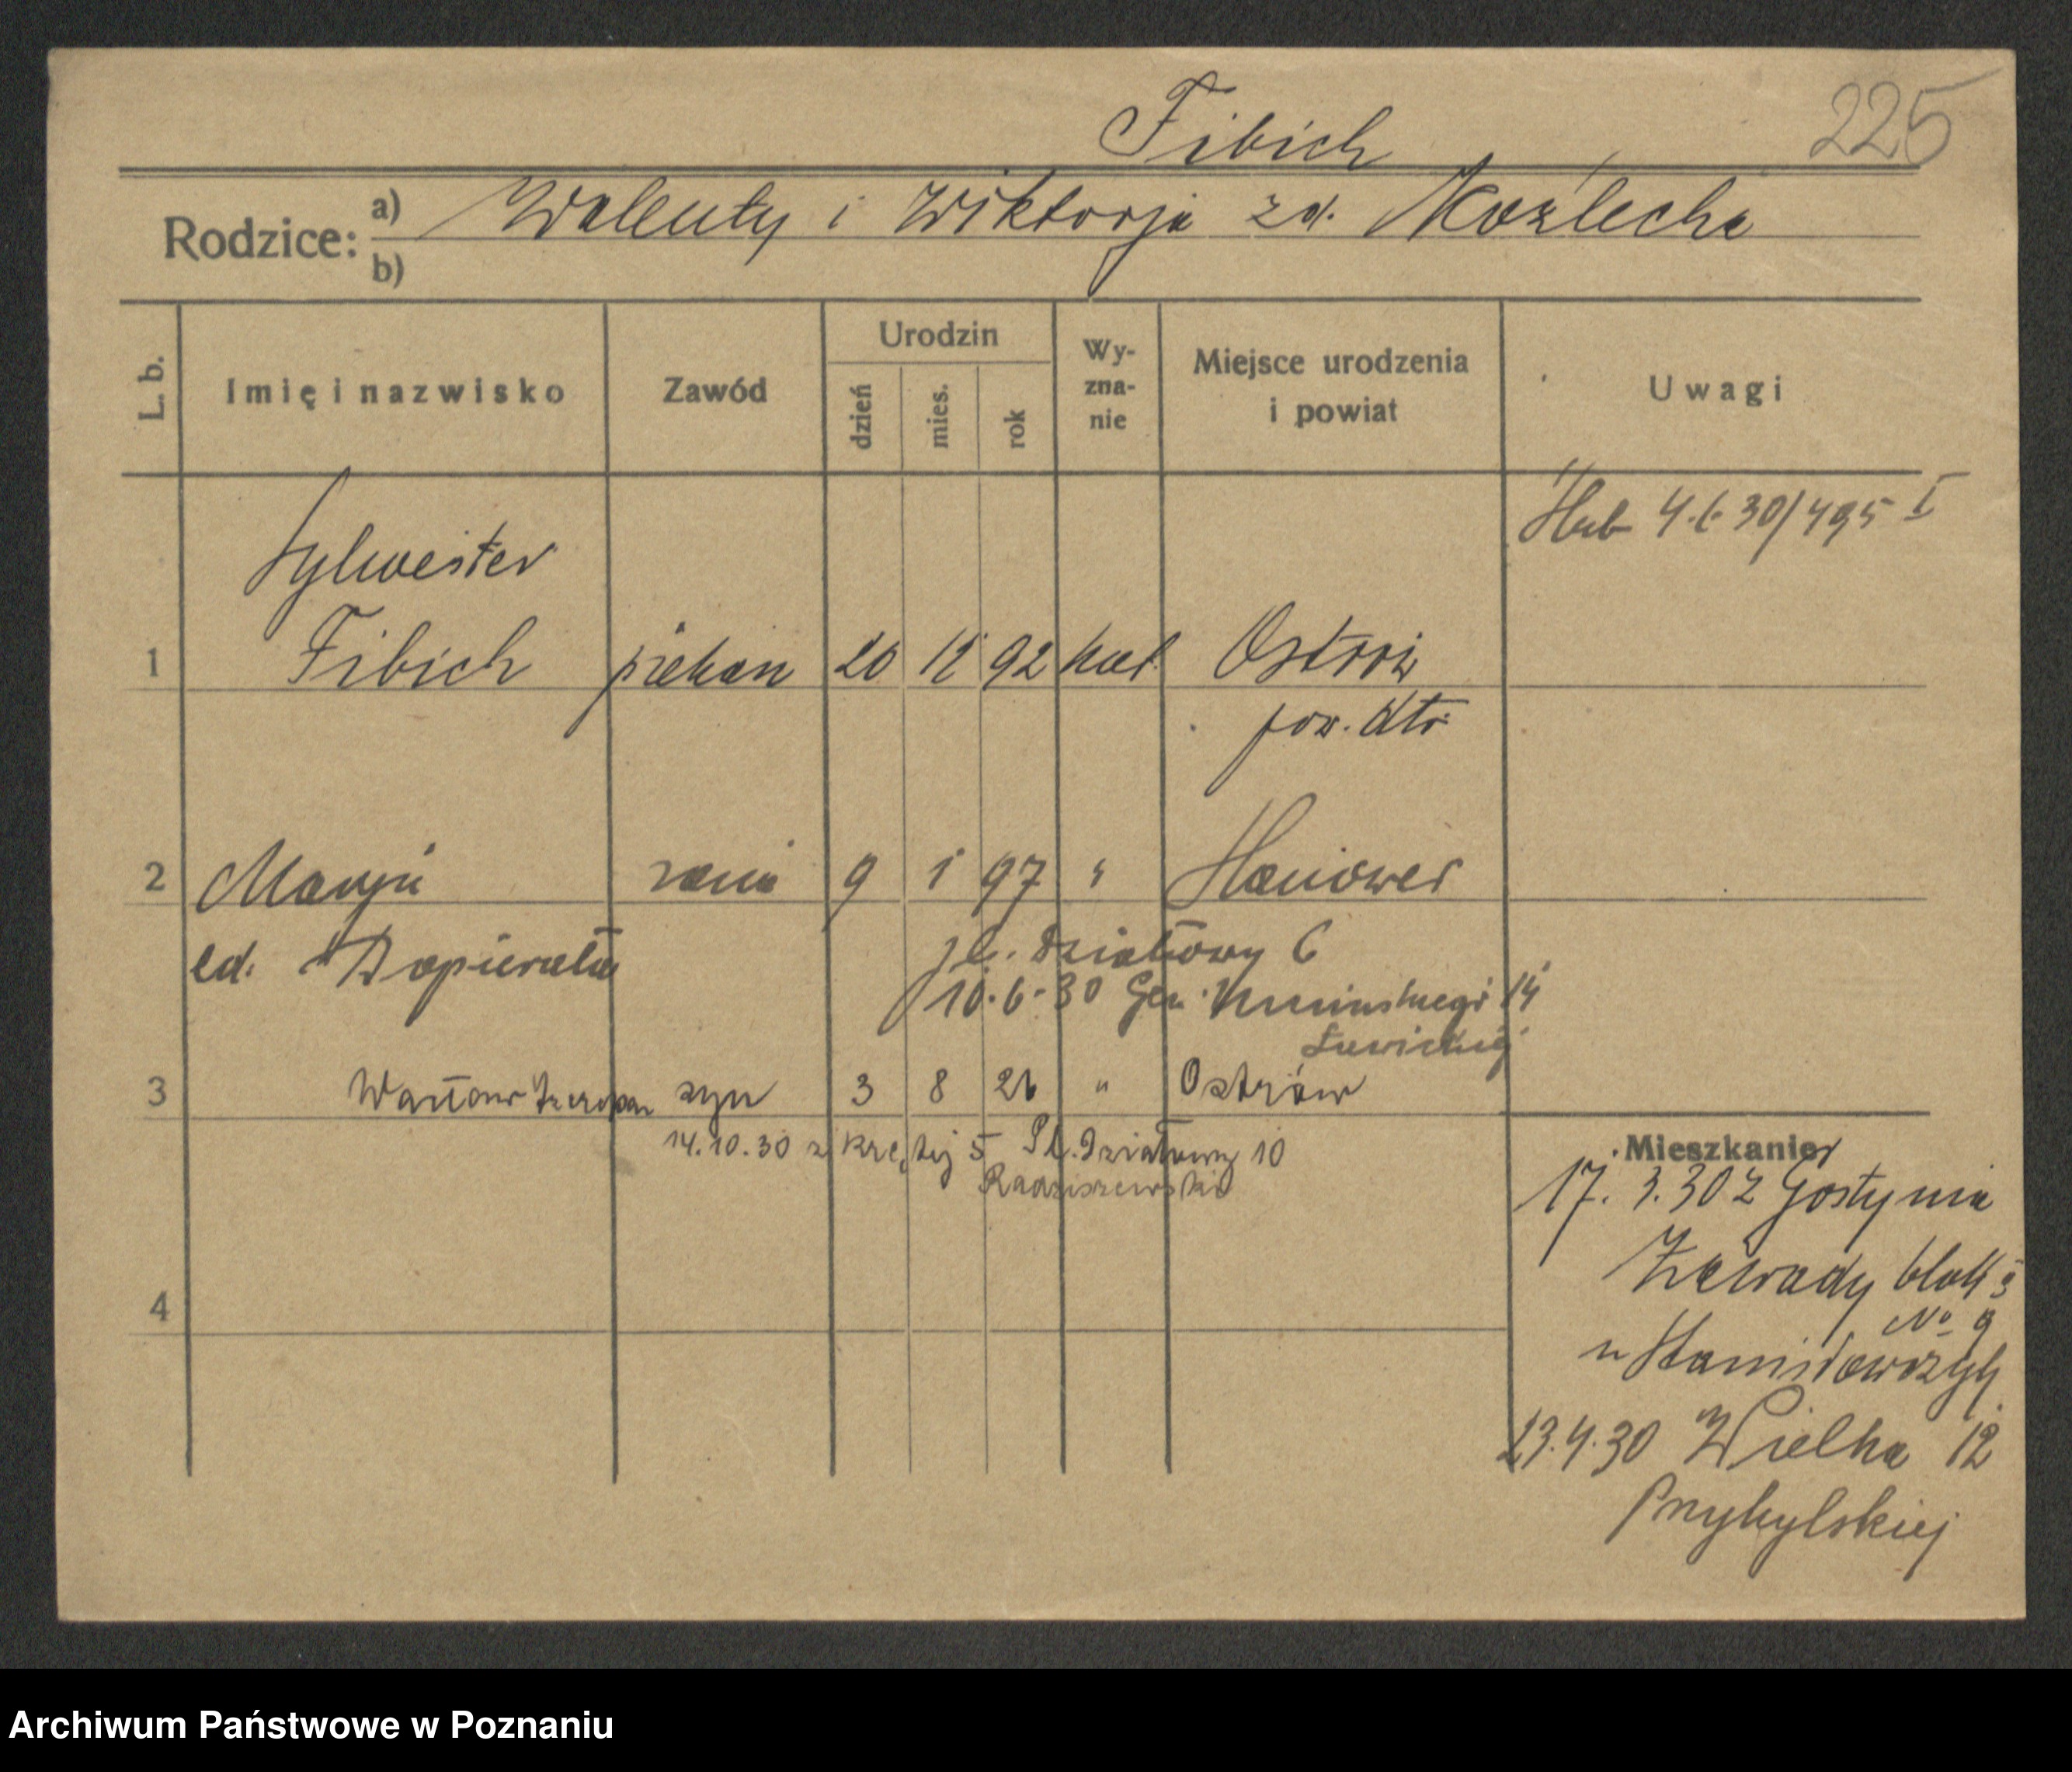 225
Fibich
Rodzice: a) Walenty i Wiktorja zd. Koźlecka
b)
L. b.
Imię i nazwisko
Zawód
Urodzin
dzień
mies.
rok
Wy-
zna-
nie
Miejsce urodzenia
i powiat
Uwagi
4.6.30/495 I
Sylwester
1 Fibich piekarz 20 12 92 kat. Ostrów
pow. dto
2 Marja żona 9 1 97 " Hanower
zd. Dopierała
pl. Działowy 6
10.6.30 Gen. 14
3 Wacław Szczepan syn 3 8 26 " Ostrów
14.10.30 z Krętej 5 Pl. Działowy 10
Radziszewski
Mieszkanie
17. 3. 30 z Gostynia
Zawady blok 5
No 9
u
4
23.4.30 Wielka 12
Przybylskiej
Archiwum Państwowe w Poznaniu